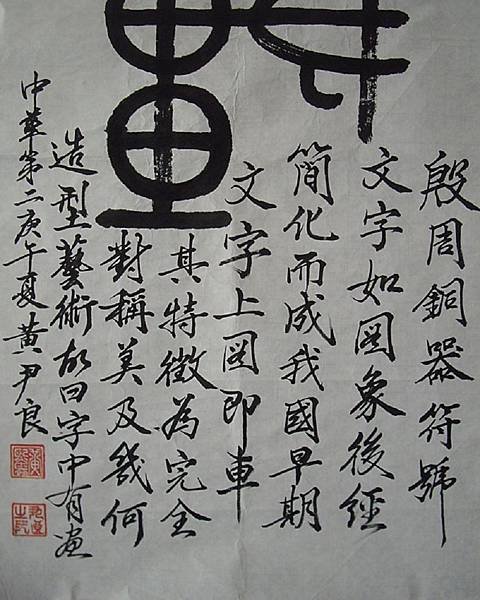 殷周銅器符號
文字如图象後經
簡化而成我國早期
文字上图即車
其特徵為完全
對稱美及幾何
造型藝術故曰字中有画
中華第二庚午夏黃尹良